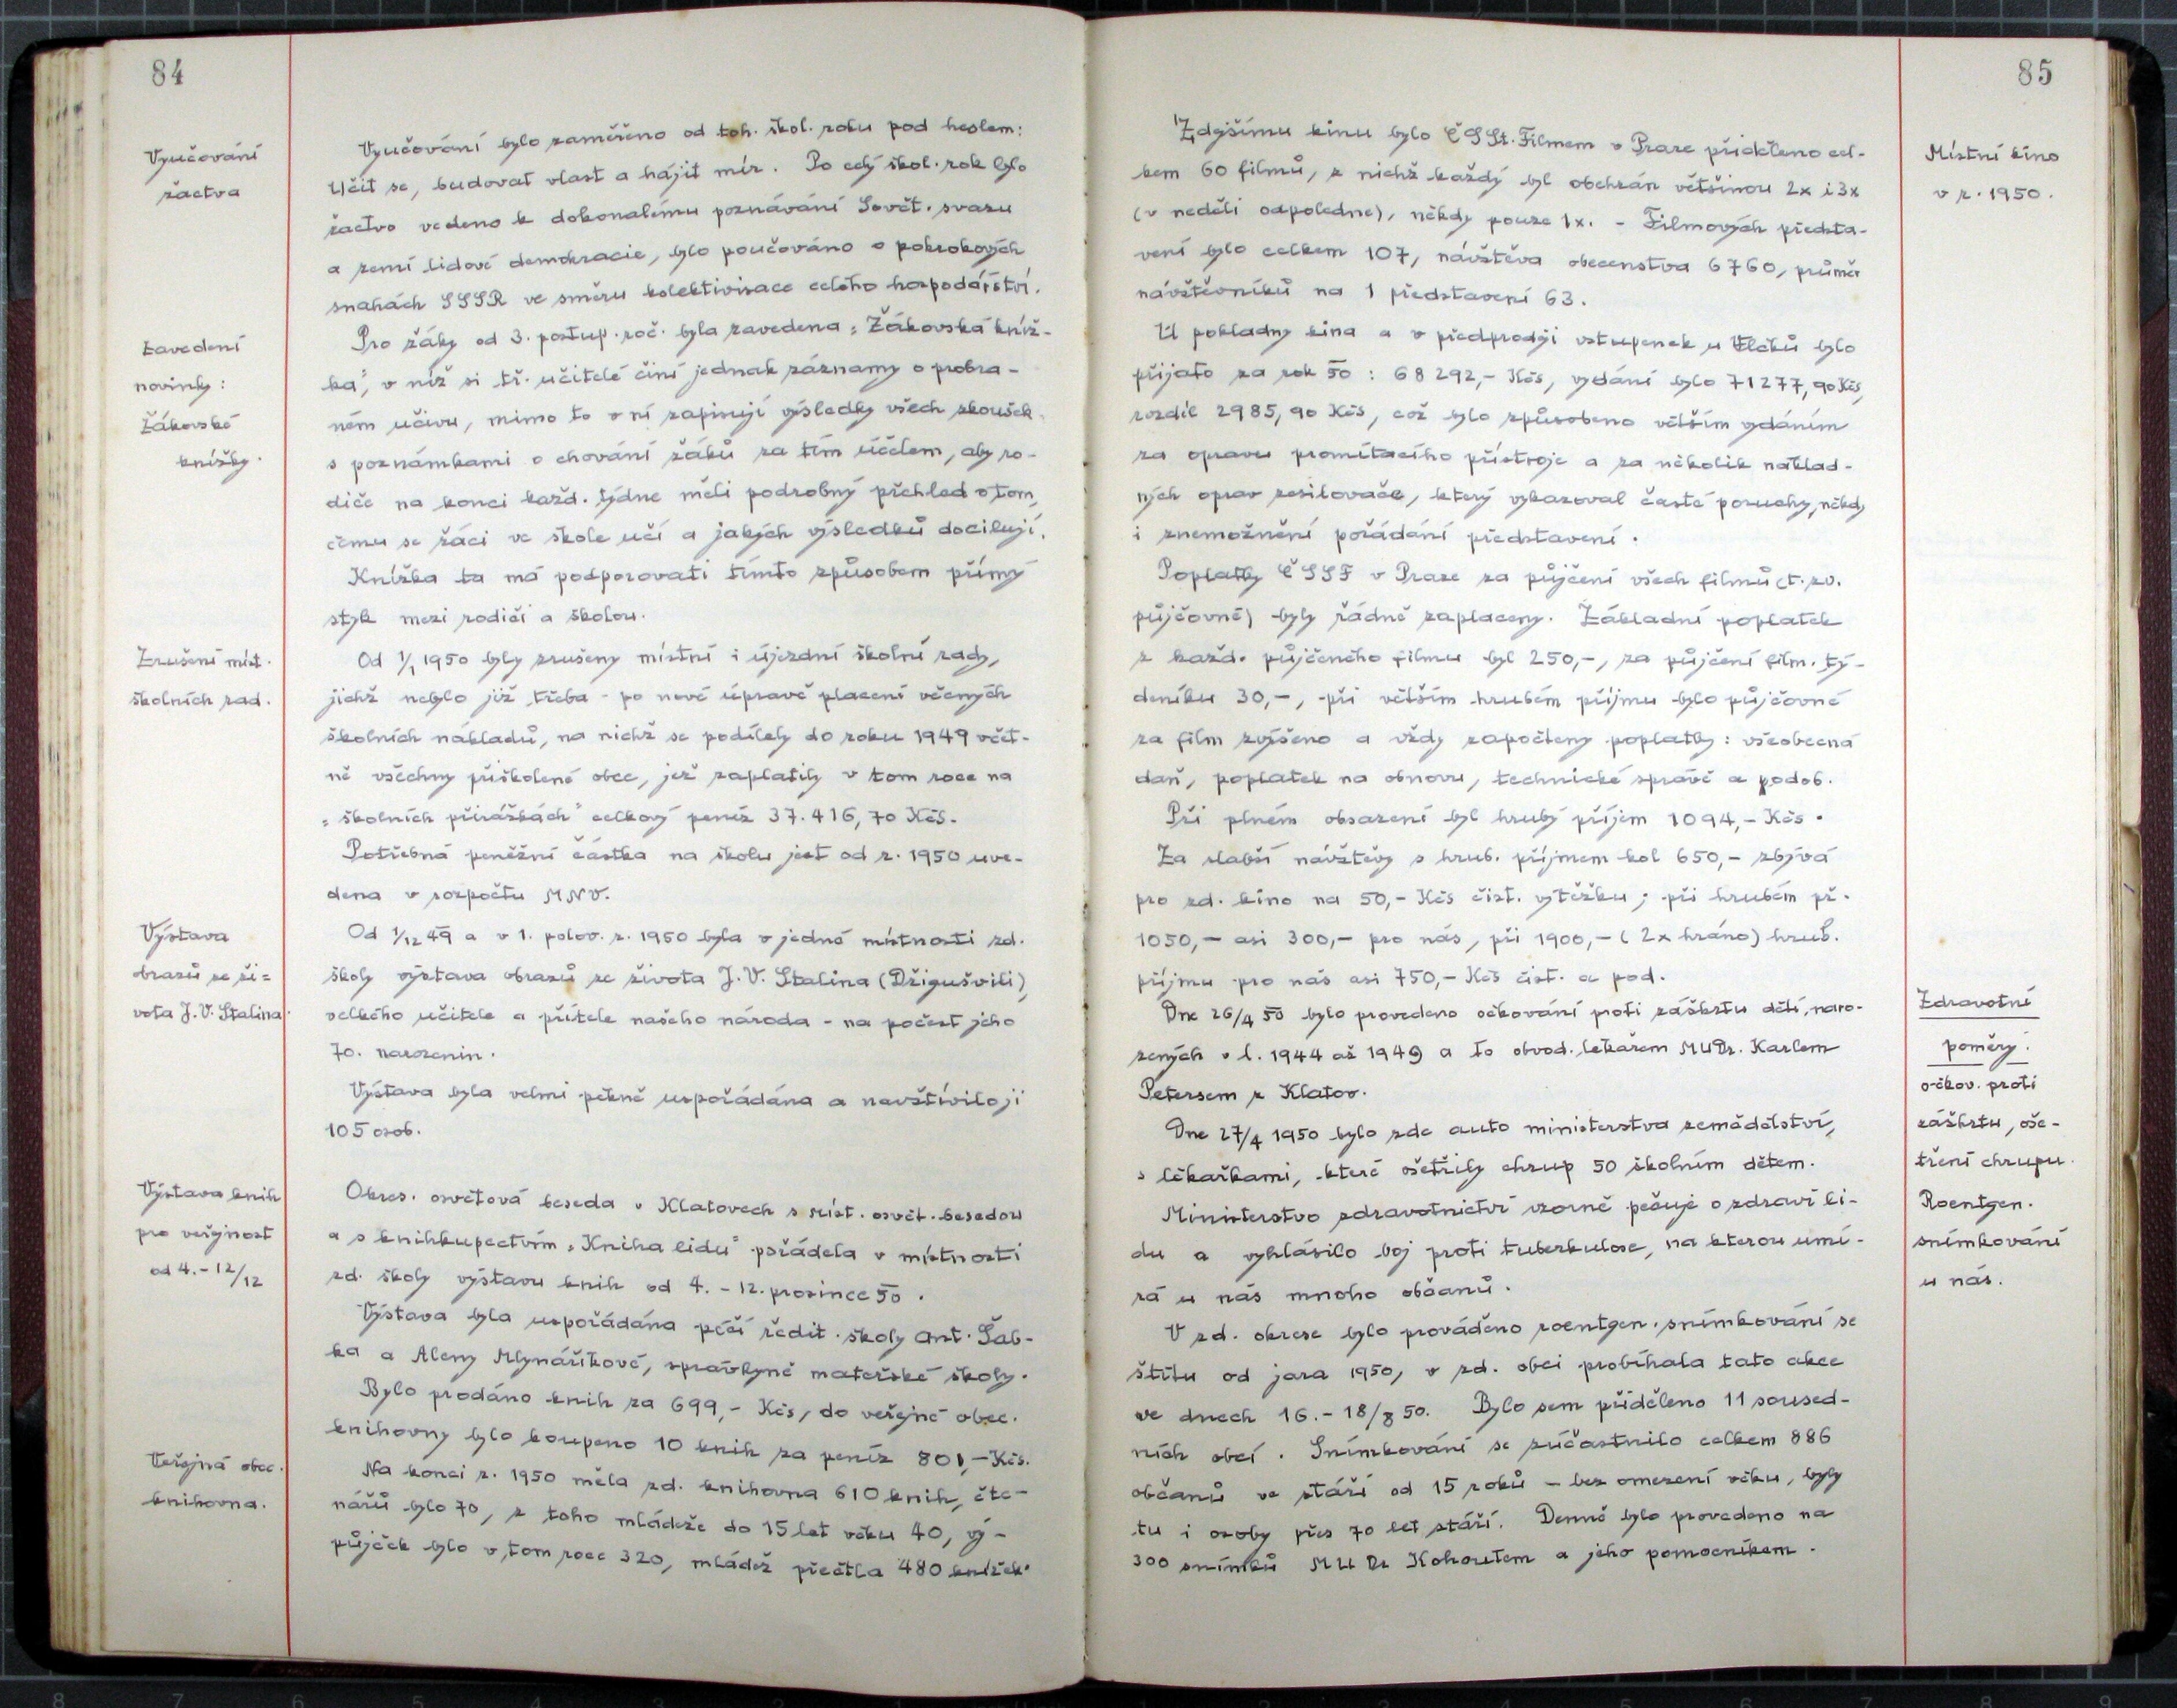 84
Vyučování
žactva
Vyučování bylo zaměřeno od toh. škol. roku pod heslem:
Učit se, budovat vlast a hájit mír. Po celý škol. rok bylo
žactvo vedeno k dokonalému poznávání Sovět. svazu
a zemí lidové demokracie, bylo poučováno o pokrokových
snahách SSSR ve směru kolektivisace celého hospodářství.
Zavedení
novinky:
Žákovské
knížky.
Pro žáky od 3. postup. roč. byla zavedena „Žákovská kníž-
ka", v níž si tř. učitelé činí jednak záznamy o probra-
ném učivu, mimo to v ní zapisují výsledky všech zkoušek
s poznámkami o chování žáků za tím účelem, aby ro-
diče na konci každ. týdne měli podrobný přehled o tom,
čemu se žáci ve škole učí a jakých výsledků docilují.
Knížka ta má podporovati tímto způsobem přímý
styk mezi rodiči a školou.
Zrušení míst.
školních rad.
Od 1/1 1950 byly zrušeny místní i újezdní školní rady,
jichž nebylo již třeba - po nové úpravě placení věcných
školních nákladů, na nichž se podílely do roku 1949 včet-
ně všechny přiškolené obce, jež zaplatily v tom roce na
„školních přirážkách" celkový peníz 37.416,70 Kčs.
Potřebná peněžní částka na školu jest od r. 1950 uve-
dena v rozpočtu MNV.
Výstava
obrazů ze ži=
vota J. V. Stalina.
Od 1/12 49 a v 1. polov. r. 1950 byla v jedné místnosti zd.
školy výstava obrazů ze života J. V. Stalina (Džigušvili),
velkého učitele a přítele našeho národa - na počest jeho
70. narozenin.
Výstava byla velmi pěkně uspořádána a navštívilo ji
105 osob.
Výstava knih
pro veřejnost
od 4.-12/12
Okres. osvětová beseda v Klatovech s míst. osvět. besedou
a s knihkupectvím „Kniha lidu" pořádala v místnosti
zd. školy výstavu knih od 4. - 12. prosince 50.
Výstava byla uspořádána péčí ředit. školy Ant. Šab-
ka a Aleny Mlynáříkové, správkyně mateřské školy.
Bylo prodáno knih za 699,- Kčs, do veřejné obec.
knihovny bylo koupeno 10 knih za peníz 801,- Kčs.
Veřejná obec.
knihovna.
Na konci r. 1950 měla zd. knihovna 610 knih, čte-
nářů bylo 70, z toho mládeže do 15 let věku 40, vý-
půjček bylo v tom roce 320, mládež přečtla 480 knížek.
85
Místní kino
v r. 1950.
Zdejšímu kinu bylo ČSSt. Filmem v Praze přiděleno cel-
kem 60 filmů, z nichž každý byl obehrán většinou 2x i 3x
(v neděli odpoledne), někdy pouze 1x. - Filmových předsta-
vení bylo celkem 107, návštěva obecenstva 6760, průměr
návštěvníků na 1 představení 63.
U pokladny kina a v předprodeji vstupenek u Vlčků bylo
přijato za rok 50 : 68 292,- Kčs, vydání bylo 71 277,90 Kčs,
rozdíl 2985,90 Kčs, což bylo způsobeno větším vydáním
za opravu promítacího přístroje a za několik náklad-
ných oprav zesilovače, který vykazoval časté poruchy, někdy
i znemožnění pořádání představení.
Poplatky ČSSF v Praze za půjčení všech filmů (t. zv.
půjčovné) byly řádně zaplaceny. Základní poplatek
z každ. půjčeného filmu byl 250,-, za půjčení film. tý-
deníku 30,-, při větším hrubém příjmu bylo půjčovné
za film zvýšeno a vždy započteny poplatky: všeobecná
daň, poplatek na obnovu, technické správě a podob.
Při plném obsazení byl hrubý příjem 1094,- Kčs.
Za slabší návštěvy s hrub. příjmem kol 650,- zbývá
pro zd. kino na 50,- Kčs čist. výtěžku; při hrubém př.
1050,- asi 300,- pro nás, při 1900,- (2x hráno) hrub.
příjmu pro nás asi 750,- Kčs čist. a pod.
Zdravotní
poměry.
očkov. proti
záškrtu, oše-
tření chrupu.
Roentgen.
snímkování
u nás.
Dne 26/4 50 bylo provedeno očkování proti záškrtu dětí, naro-
zených v l. 1944 až 1949 a to obvod. lékařem MUDr. Karlem
Petersem z Klatov.
Dne 27/4 1950 bylo zde auto ministerstva zemědělství,
s lékařkami, které ošetřily chrup 50 školním dětem.
Ministerstvo zdravotnictví vzorně pečuje o zdraví li-
du a vyhlásilo boj proti tuberkulose, na kterou umí-
rá u nás mnoho občanů.
V zd. okrese bylo prováděno roentgen. snímkování se
štítu od jara 1950, v zd. obci probíhala tato akce
ve dnech 16.-18/8 50. Bylo sem přiděleno 11 soused-
ních obcí. Snímkování se zúčastnilo celkem 886
občanů ve stáří od 15 roků - bez omezení věku, byly
tu i osoby přes 70 let stáří. Denně bylo provedeno na
300 snímků MUDr Kohoutem a jeho pomocníkem.